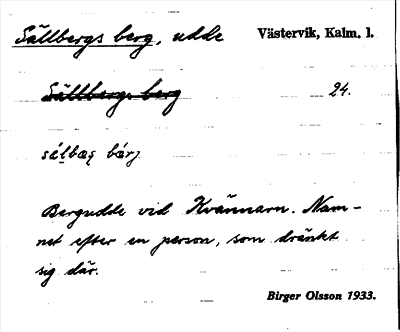 Sällbergs berg, udde Västervik, Kalm. l.
Sällbergs berg 24.
sálbæș bárj
Bergudde vid Kvännarn. Nam-
net efter en person, som dränkt
sig där.
Birger Olsson 1933.